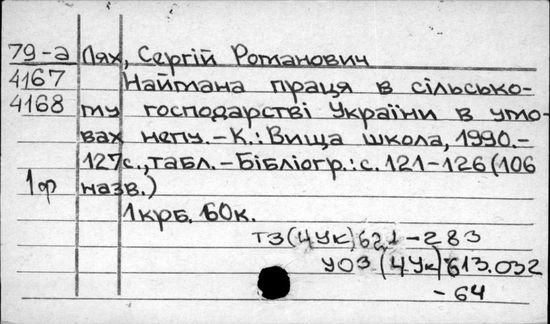 79-а Лях, Сергій Романович
4167 Наймана праця в сільсько-
4168 му господарстві України в умо-
вах непу.-К.: Вища школа, 1990.-
127с.,табл.-Бібліогр.: с. 121-126 (106
1ф назв.)
1крб. 60к.
Т3(4Ук)621-283
У03(4Ук)613.032
-64